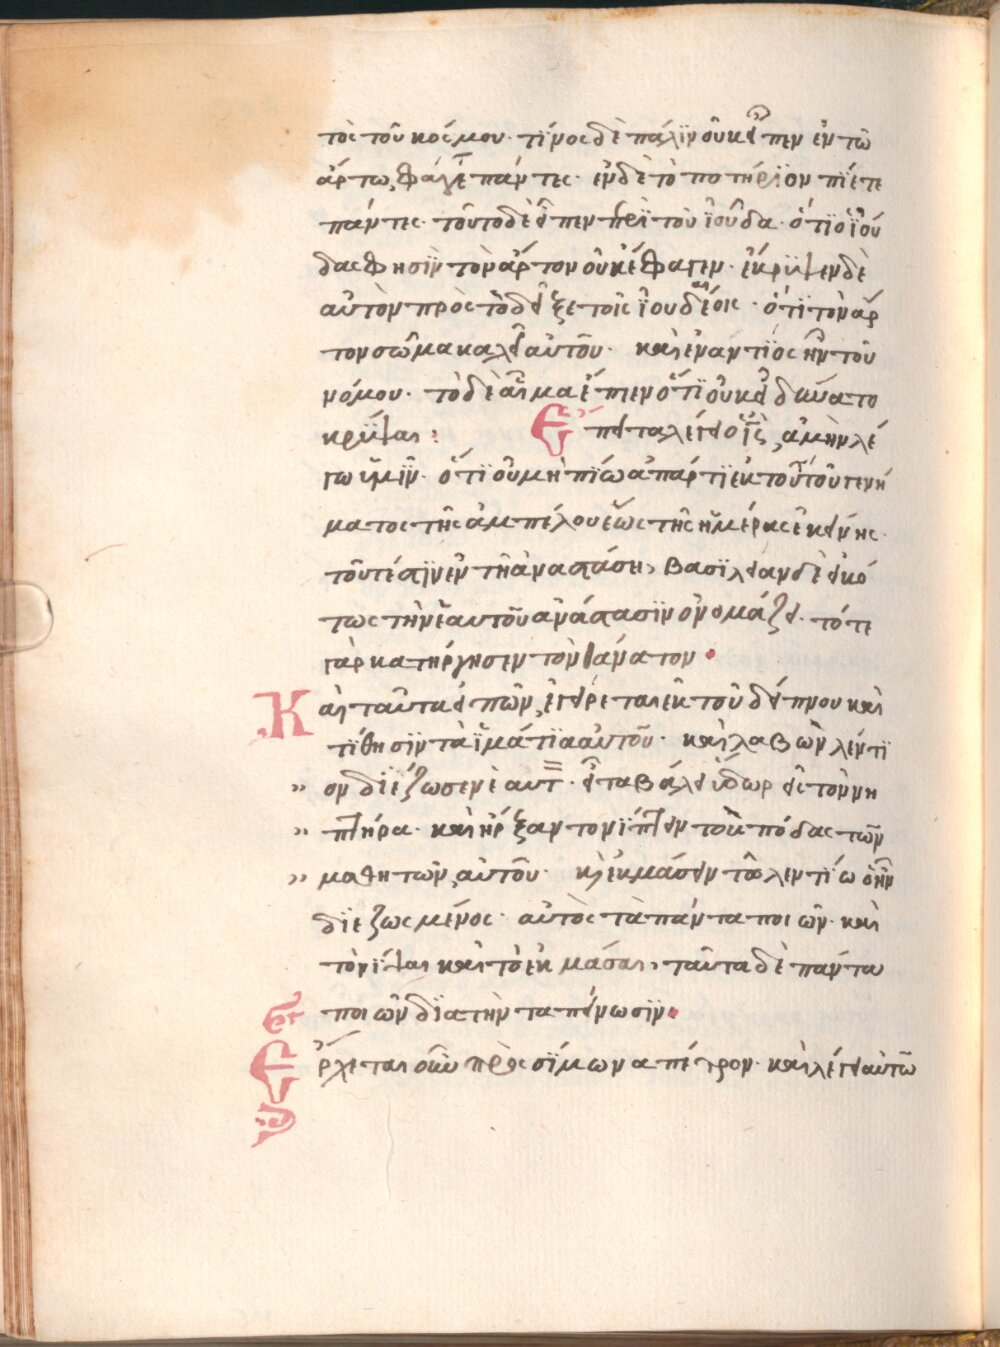 τὸς τοῦ κόσμου· τίνος δὲ πάλιν οὐκ εἶπεν ἐν τῶ
ἄρτω, φάγετε πάντες· ἐν δὲ τὸ ποτήριον πίετε
πάντες· τοῦτο δὲ εἶπεν περὶ τοῦ ἰοῦδα· ὅτι ὁ ἰού
δας φησὶν τὸν ἄρτον οὐκ ἔφαγεν· ἔκρυψεν δὲ
αὐτὸν πρὸς τὸ δεῖξε τοῖς ἰουδαίοις· ὅτι τὸν ἄρ
τον σῶμα καλεῖ αὐτοῦ· καὶ ἐναντίος ἦν τοῦ
νόμου· τὸ δὲ αἷμα ἔπιεν ὅτι οὐκ ἐδύνατο
κρύψαι: Εἶτα λέγει ὁ ἰς, ἀμὴν λέ
γω ὑμῖν· ὅτι οὐ μὴ πίω ἀπάρτι ἐκ τούτου τοῦ γενή
ματος τῆς ἀμπέλου ἕως τῆς ἡμέρας ἐκείνης·
τοῦτέστιν ἐν τῆ ἀναστάσει, βασιλείαν δὲ εἰκό
τως τὴν ἑαυτοῦ ἀνάστασιν ὀνομάζει· τότε
γὰρ κατήργησεν τὸν θάνατον.
Καὶ ταῦτα εἰπῶν, ἐγείρεται ἐκ τοῦ δείπνου καὶ
τίθησιν τὰ ἱμάτια αὐτοῦ· καὶ λαβὼν λέντι
" ον διέζωσεν ἑαυτ· εἶτα βάλει ὕδωρ εἰς τὸν νη
" πτήρα· καὶ ἤρξαντο νίπτειν τοὺς πόδας τῶν
" μαθητῶν αὐτοῦ· κ ἐκμάσειν τῶ λεντίω ὃ ἦν
διεζωσμένος· αὐτὸς τὰ πάντα ποιῶν· καὶ
τὸ νίψαι καὶ τὸ ἐκμάσαι, ταῦτα δὲ πάντα
ποιῶν διὰ τὴν ταπείνωσιν.
Ἔρχεται οὖν πρὸς σίμωνα πέτρον· καὶ λέγει αὐτῶ